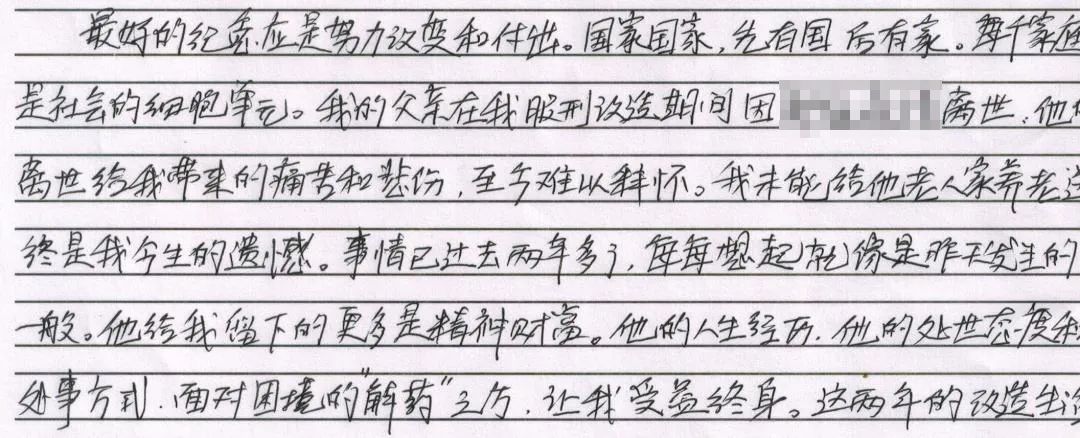 最好的纪念应是努力改变和付出。国家国家,先有国后有家。每个家庭
是社会的细胞单元。我的父亲在我服刑改造期间因 离世,他
离世给我带来的痛苦和悲伤,至今难以释怀。我未能给他老人家养老送
终是我今生的遗憾。事情已过去两年多了,每每想起就像是昨天发生的
一般。他给我留下的更多是精神财富。他的人生经历,他的处世态度和
处事方式,面对困境的"解药"之方,让我受益终身。这两年的改造生活